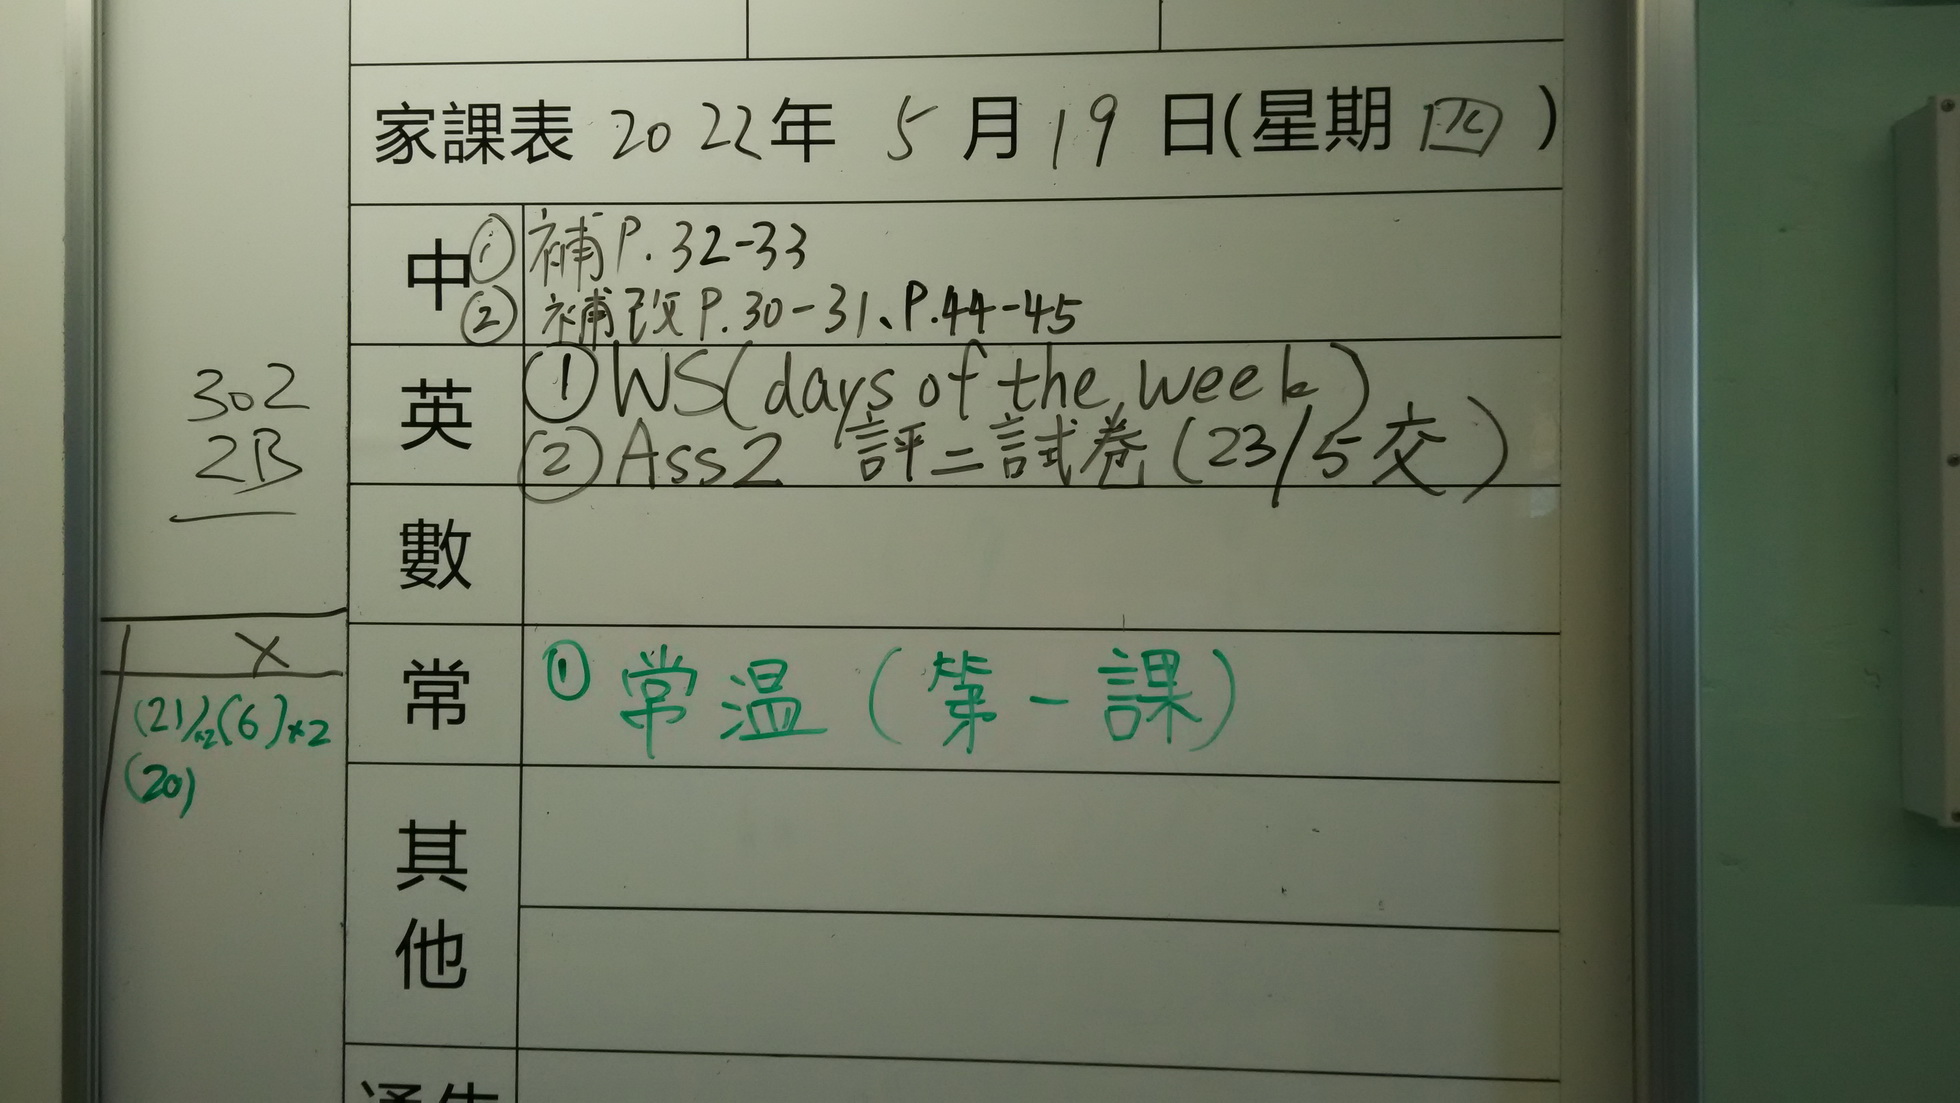 家課表 2022年 5月19日(星期四)
中 ① 補P.32-33
② 補改P.30-31、P.44-45
英 ① WS(days of the week)
② Ass2 評二試卷(23/5交)
數
常 ① 常温(第一課)
其他
302
2B
X
(21)x2(6)x2
(20)